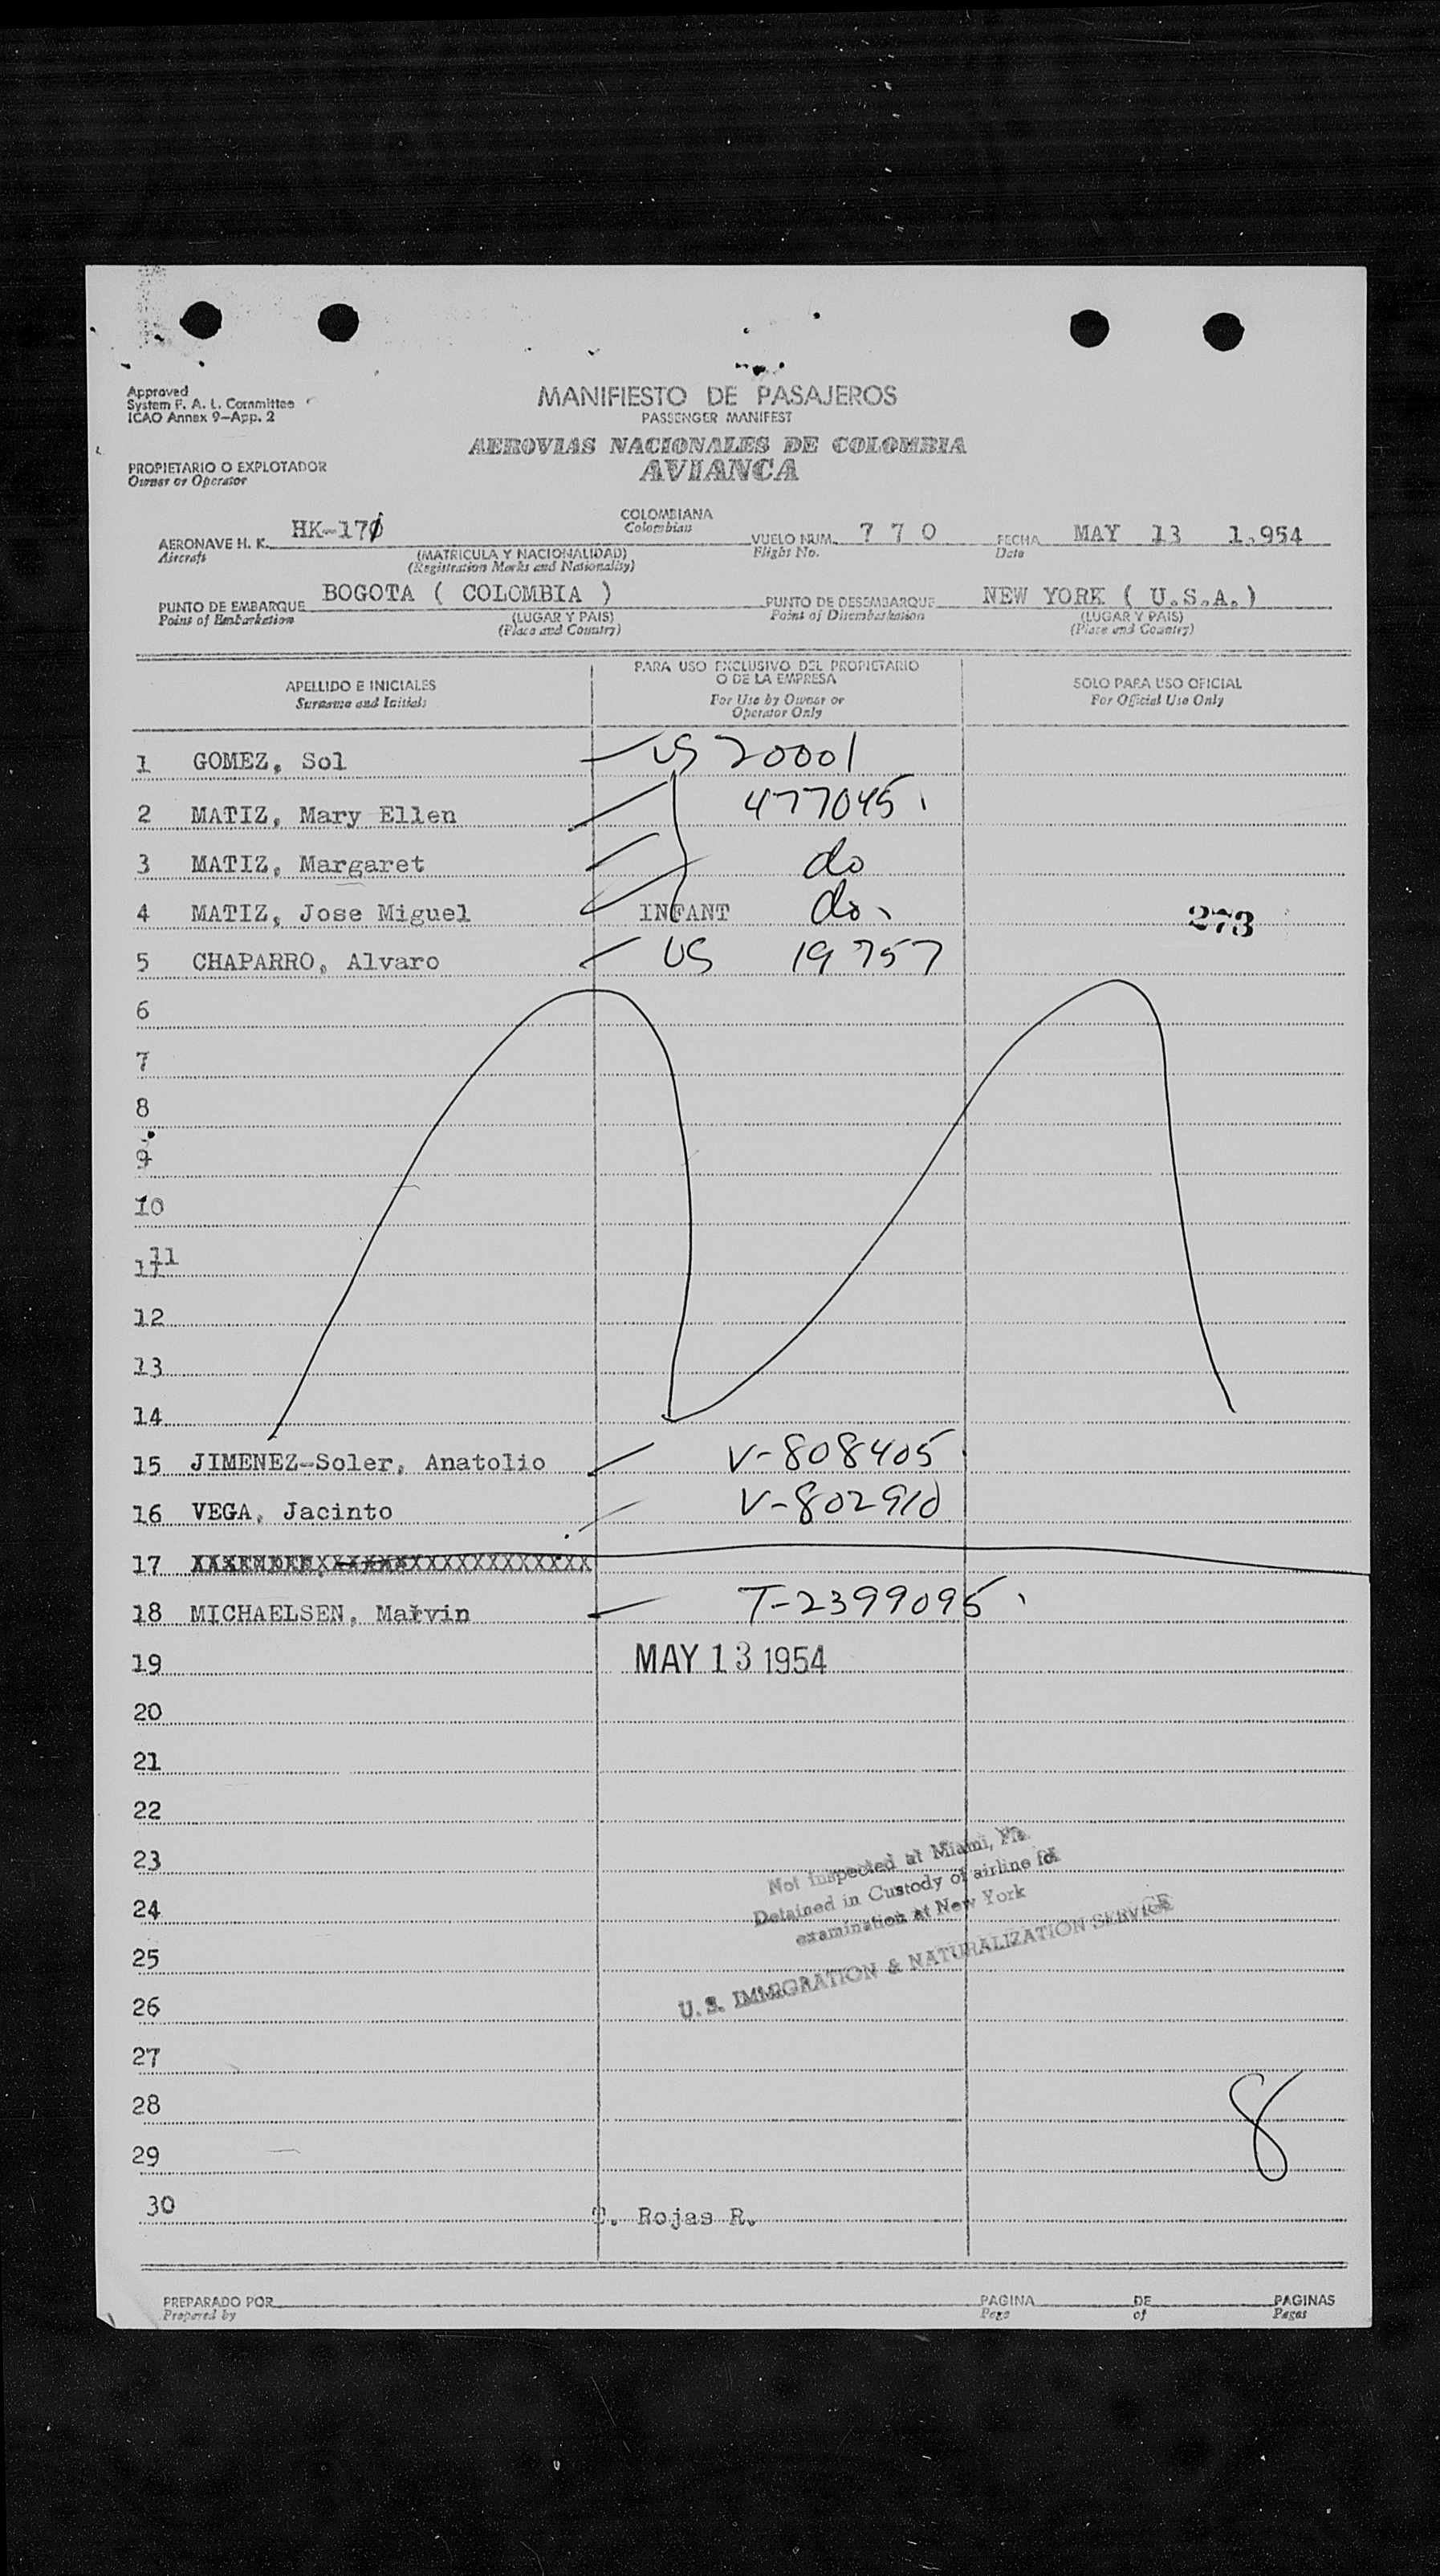 Approved
System F. A. L. Committee
ICAO Annex 9-App. 2
MANIFIESTO DE PASAJEROS
PASSENGER MANIFEST
AEROVIAS NACIONALES DE COLOMBIA
AVIANCA
PROPIETARIO O EXPLOTADOR
Owner or Operator
AERONAVE H. K. HK-170 COLOMBIANA VUELO NUM. 7 7 0 FECHA MAY 13 1.954
Aircraft Colombian Flight No. Date
(MATRICULA Y NACIONALIDAD)
(Registration Marks and Nationality)
PUNTO DE EMBARQUE BOGOTA ( COLOMBIA ) PUNTO DE DESEMBARQUE NEW YORK ( U.S.A. )
Point of Embarkation (LUGAR Y PAIS) Point of Disembarkation (LUGAR Y PAIS)
(Place and Country) (Place and Country)
APELLIDO E INICIALES
Surname and Initials
PARA USO EXCLUSIVO DEL PROPIETARIO
O DE LA EMPRESA
For Use by Owner or
Operator Only
SOLO PARA USO OFICIAL
For Official Use Only
1 GOMEZ, Sol US 20001
2 MATIZ, Mary Ellen 477045
3 MATIZ, Margaret do
4 MATIZ, Jose Miguel INFANT do 273
5 CHAPARRO, Alvaro US 19757
6
7
8
9
10
11
12
13
14
15 JIMENEZ-Soler, Anatolio V-808405
16 VEGA, Jacinto V-802910
17
18 MICHAELSEN, Marvin T-2399095
19 MAY 13 1954
20
21
22
23
24
25
26
27
28
29
30
Not inspected at Miami, Fla.
Detained in Custody of airline for
examination at New York
U. S. IMMIGRATION & NATURALIZATION SERVICE
8
T. Rojas R.
PREPARADO POR PAGINA DE PAGINAS
Prepared by Page of Pages